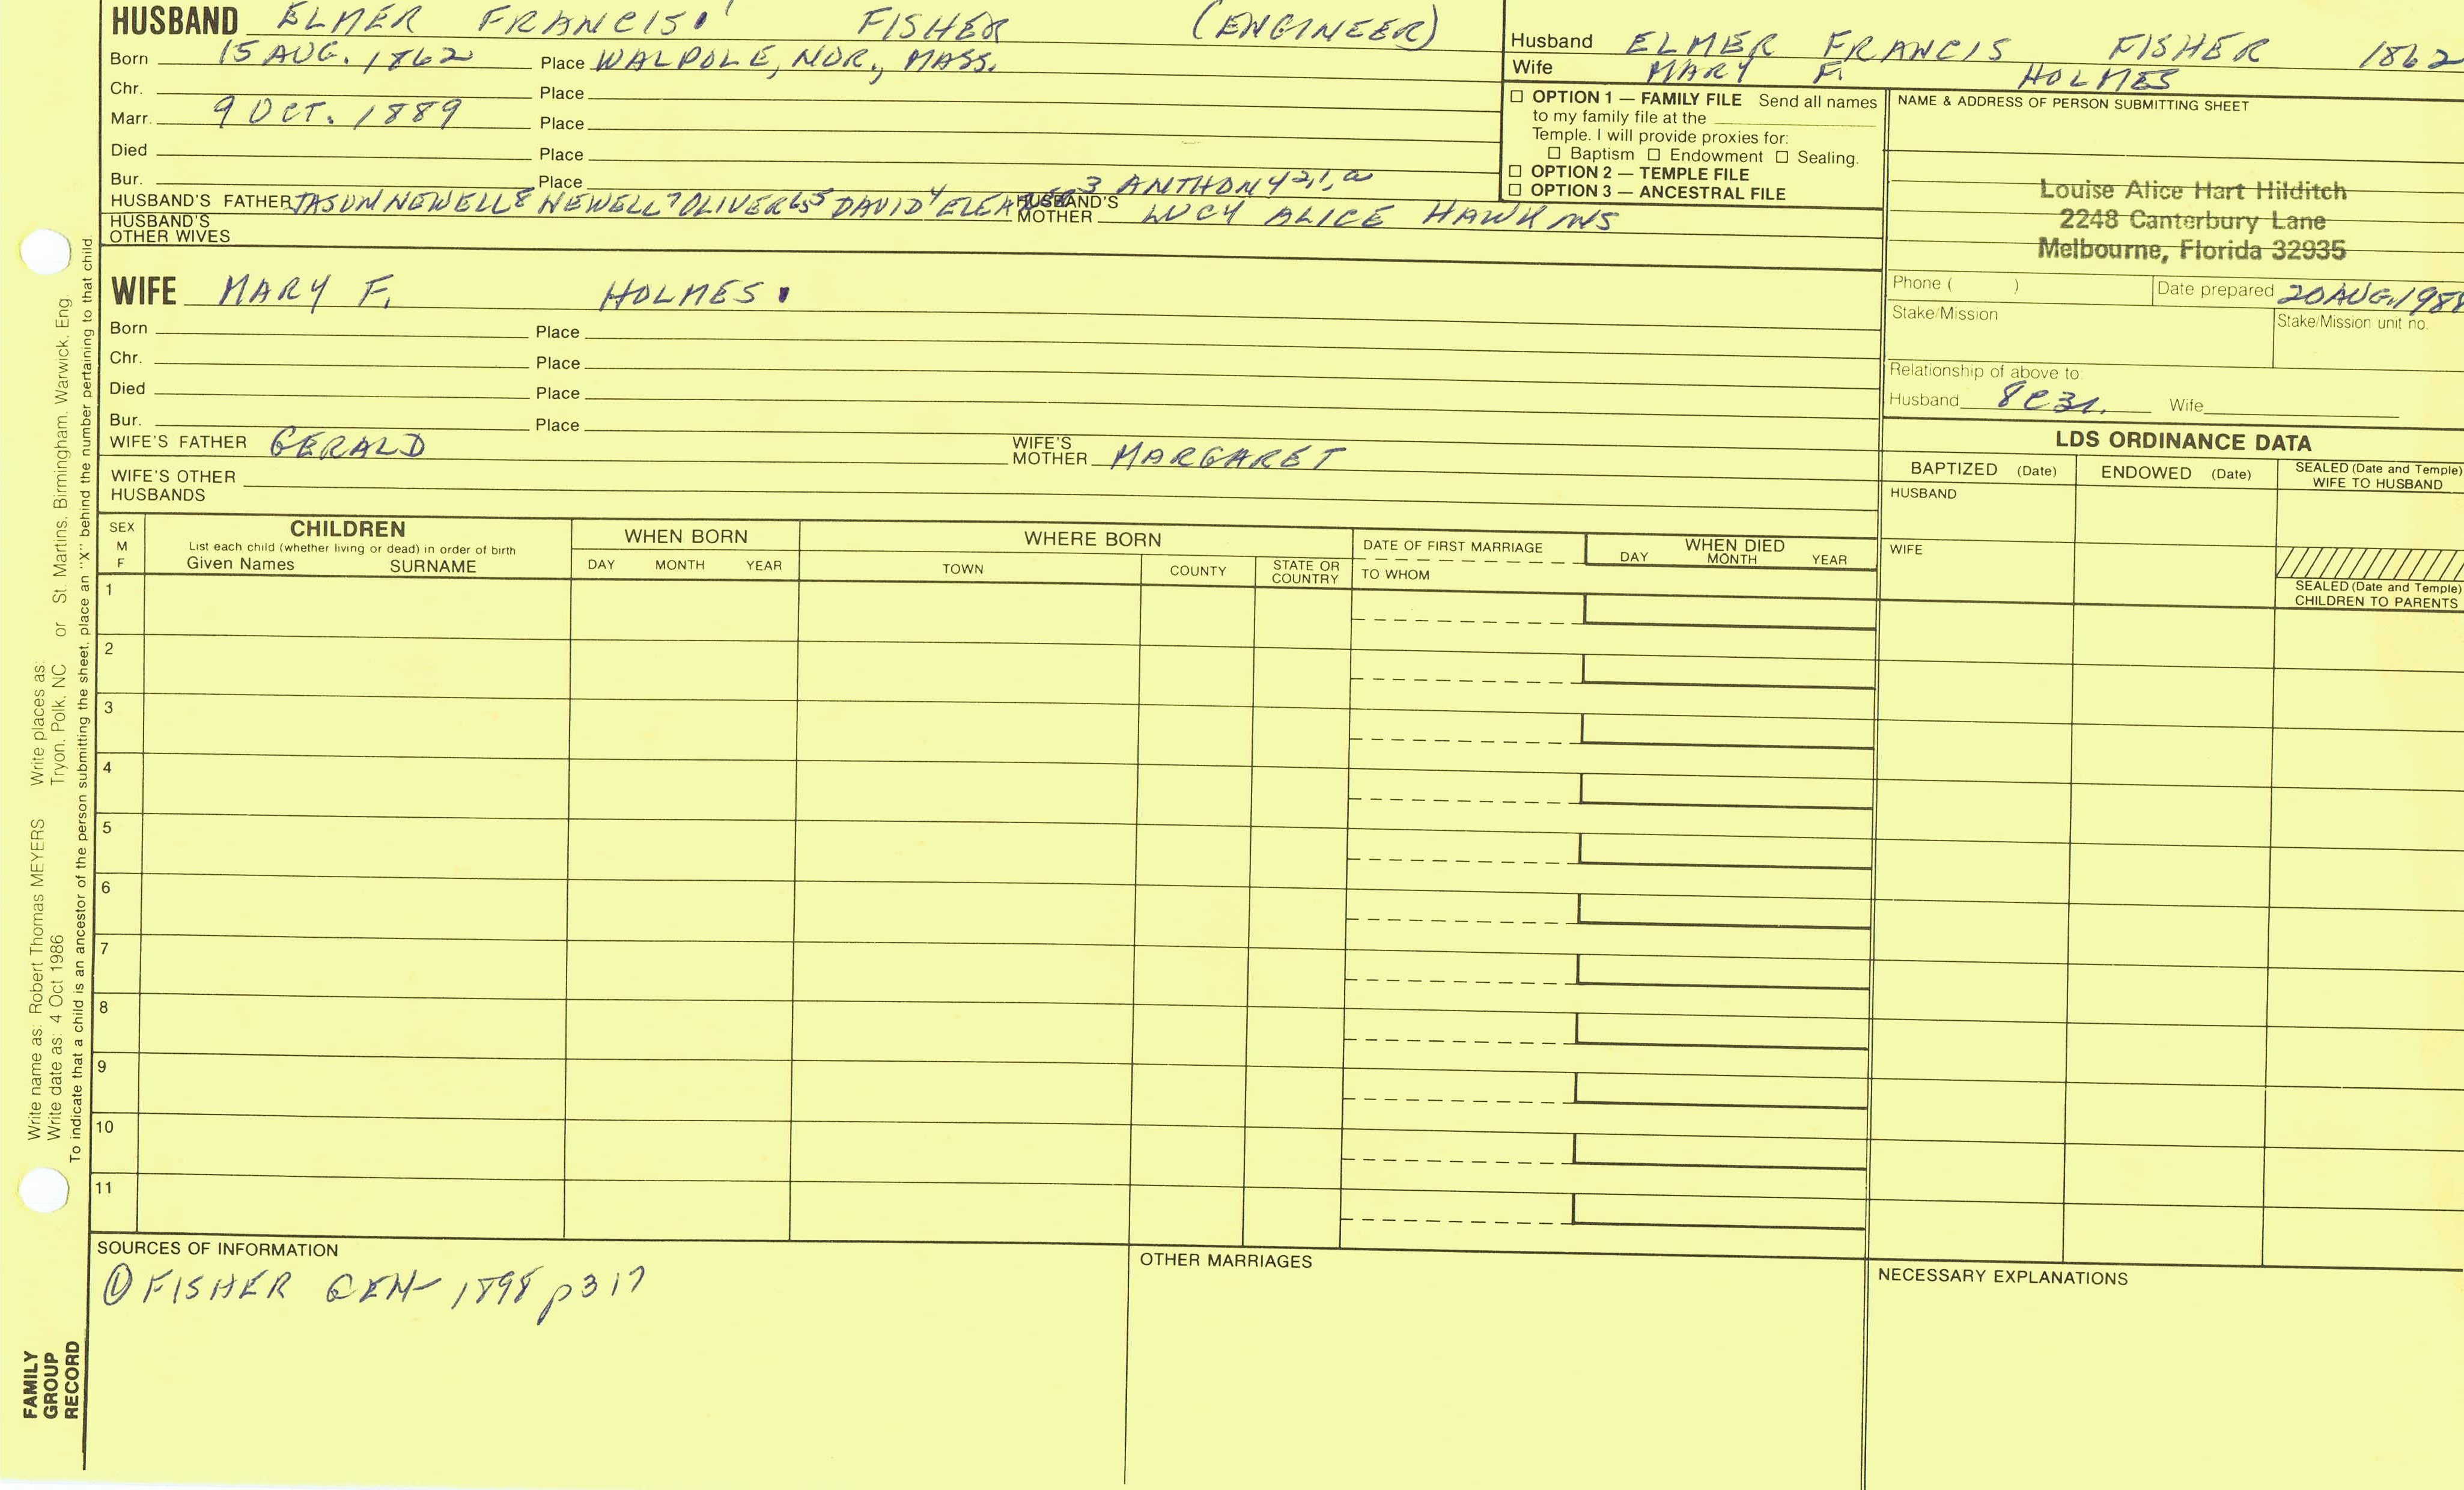 HUSBAND ELMER FRANCIS FISHER (ENGINEER)
Born 15 AUG. 1862 Place WALPOLE, NOR., MASS.
Chr. Place
Marr. 9 OCT. 1889 Place
Died Place
Bur. Place
HUSBAND'S FATHER JASON NEWELL 8 NEWELL 7 OLIVER 6,5 DAVID 4 ELEAZER 3 ANTHONY 2,1,a
HUSBAND'S MOTHER LUCY ALICE HAWKINS
HUSBAND'S
OTHER WIVES
WIFE MARY F. HOLMES
Born Place
Chr. Place
Died Place
Bur. Place
WIFE'S FATHER GERALD WIFE'S MOTHER MARGARET
WIFE'S OTHER
HUSBANDS
Husband ELMER FRANCIS FISHER 1862
Wife MARY F. HOLMES
OPTION 1 — FAMILY FILE Send all names
to my family file at the
Temple. I will provide proxies for:
Baptism Endowment Sealing.
OPTION 2 — TEMPLE FILE
OPTION 3 — ANCESTRAL FILE
NAME & ADDRESS OF PERSON SUBMITTING SHEET
Louise Alice Hart Hilditch
2248 Canterbury Lane
Melbourne, Florida 32935
Phone ( ) Date prepared 20 AUG. 1988
Stake/Mission Stake/Mission unit no.
Relationship of above to:
Husband 8C3R. Wife
LDS ORDINANCE DATA
BAPTIZED (Date) ENDOWED (Date) SEALED (Date and Temple)
WIFE TO HUSBAND
HUSBAND
WIFE
SEALED (Date and Temple)
CHILDREN TO PARENTS
SEX
M
F
CHILDREN
List each child (whether living or dead) in order of birth
Given Names SURNAME
WHEN BORN
DAY MONTH YEAR
WHERE BORN
TOWN COUNTY STATE OR COUNTRY
DATE OF FIRST MARRIAGE
TO WHOM
WHEN DIED
DAY MONTH YEAR
1
2
3
4
5
6
7
8
9
10
11
SOURCES OF INFORMATION
① FISHER GEN 1898 p 317
OTHER MARRIAGES
NECESSARY EXPLANATIONS
Write name as: Robert Thomas MEYERS Write places as:
Write date as: 4 Oct 1986 Tryon, Polk, NC or St. Martins, Birmingham, Warwick, Eng.
To indicate that a child is an ancestor of the person submitting the sheet, place an "X" behind the number pertaining to that child.
FAMILY
GROUP
RECORD